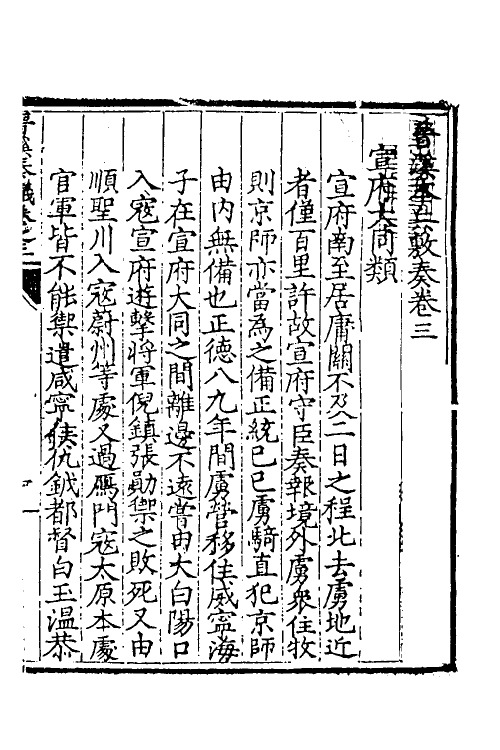 晉溪本兵敷奏卷三
宣府大同類
宣府南至居庸關不及二日之程北去虜地近
者僅百里許故宣府守臣奏報境外虜衆住牧
則京師亦當為之備正統己巳虜騎直犯京師
由內無備也正德八九年間虜營移住威寧海
子在宣府大同之間離邊不遠嘗由大白陽口
入寇宣府遊擊將軍倪鎮張勛禦之敗死又由
順聖川入寇蔚州等處又過鴈門寇太原本處
官軍皆不能禦遣咸寧侯仇鉞都督白玉溫恭